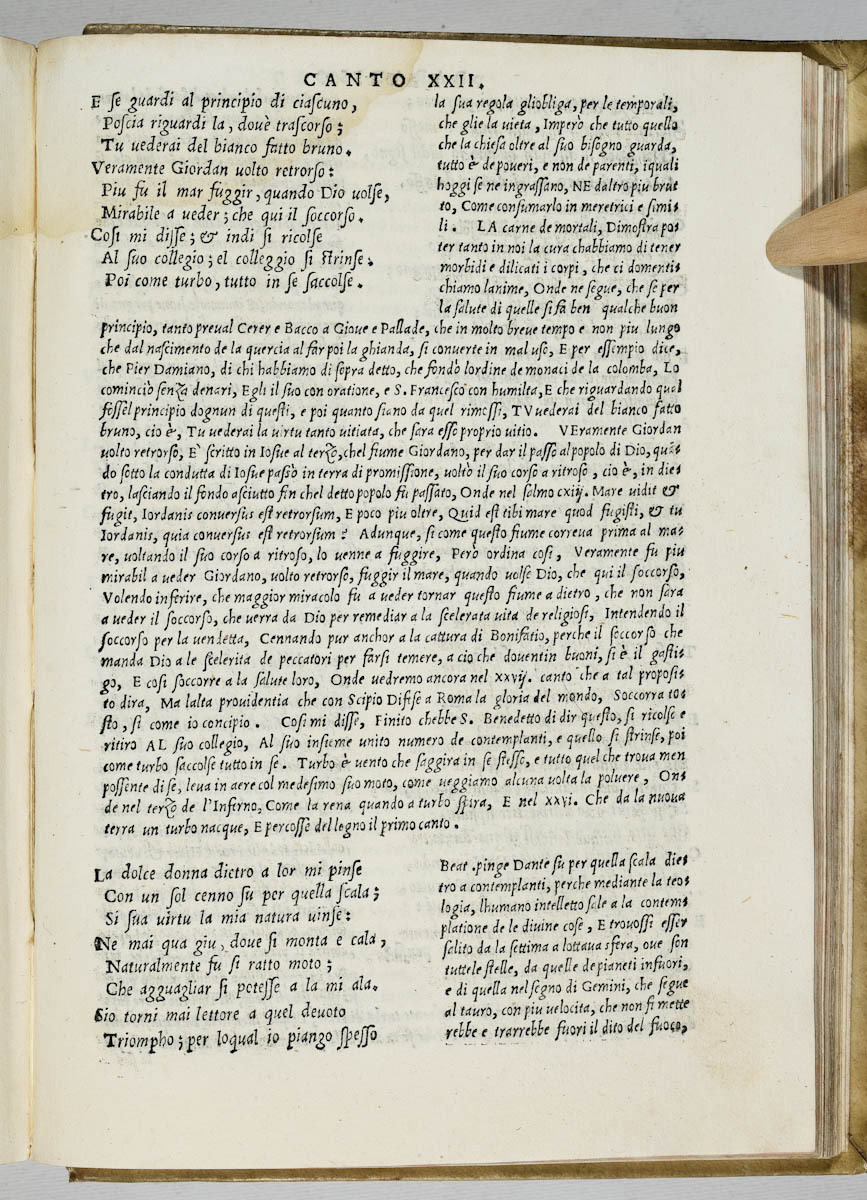 CANTO XXII.
E se guardi al principio di ciascuno,
Poscia riguardi la, dovè trascorso;
Tu vederai del bianco fatto bruno.
Veramente Giordan volto retrorso:
Piu fu il mar fuggir, quando Dio volse,
Mirabile a veder; che qui il soccorso.
Cosi mi disse; & indi si ricolse
Al suo collegio; el colleggio si strinse:
Poi come turbo, tutto in se saccolse.
la sua regola gliobliga, per le temporali,
che glie la vieta, Imperò che tutto quello
che la chiesa oltre al suo bisogno guarda,
tutto è de poveri, e non de parenti, iquali
hoggi se ne ingrassano, NE daltro piu brut
to, Come consumarlo in meretrici e simi
li. LA carne de mortali, Dimostra pos
ter tanto in noi la cura chabbiamo di tener
morbidi e dilicati i corpi, che ci domentis
chiamo lanime, Onde ne segue, che se per
la salute di quelle si fa ben qualche buon
principio, tanto preval Cerer e Bacco a Giove e Pallade, che in molto breve tempo e non piu lungo
che dal nascimento de la quercia al far poi la ghianda, si converte in mal uso, E per essempio dice,
che Pier Damiano, di chi habbiamo di sopra detto, che fondò lordine de monaci de la colomba, Lo
cominciò senza denari, Egli il suo con oratione, e S. Francesco con humilta, E che riguardando qual
fossel principio dognun di questi, e poi quanto siano da quel rimossi, TVuederai del bianco fatto
bruno, cio è, Tu vederai la virtu tanto vitiata, che sara esse proprio vitio. VEramente Giordan
volto retrorso, E' scritto in Iosue al terzo, chel fiume Giordano, per dar il passo al popolo di Dio, quã
do sotto la condutta di Iosue passò in terra di promissione, voltò il suo corso a ritroso, cio è, in die
tro, lasciando il fondo asciutto fin chel detto popolo fu passato, Onde nel salmo cxiij. Mare vidit &
fugit, Iordanis conversus est retrorsum, E poco piu oltre, Quid est tibi mare quod fugisti, & tu
Iordanis, quia conversus est retrorsum? Adunque, si come questo fiume correva prima al ma
re, voltando il suo corso a ritroso, lo venne a fuggire, Però ordina cosi, Veramente fu piu
mirabil a veder Giordano, volto retrorso, fuggir il mare, quando volse Dio, che qui il soccorso,
Volendo inferire, che maggior miracolo fu a veder tornar questo fiume a dietro, che non sara
a veder il soccorso, che verra da Dio per remediar a la scelerata vita de religiosi, Intendendo il
soccorso per la vendetta, Cennando pur anchor a la cattura di Bonifatio, perche il soccorso che
manda Dio a le scelerita de peccatori per farsi temere, a cio che doventin buoni, si è il gasti
go, E cosi soccorre a la salute loro, Onde vedremo ancora nel xxvij. canto che a tal proposi
to dira, Ma lalta providentia che con Scipio Difise a Roma la gloria del mondo, Soccorra to
sto, si come io concipio. Cosi mi disse, Finito chebbe S. Benedetto di dir questo, si ricolse e
ritiro AL suo collegio, Al suo insieme unito numero de contemplanti, e quello si strinse, poi
come turbo saccolse tutto in se. Turbo è vento che saggira in se stesso, e tutto quel che trova men
possente di se, leva in aere col medesimo suo moto, come veggiamo alcuna volta la polvere, On
de nel terzo de l'Inferno, Come la rena quando a turbo spira, E nel xxvi. Che da la nuova
terra un turbo nacque, E percosse del legno il primo canto.
La dolce donna dietro a lor mi pinse
Con un sol cenno su per quella scala;
Si sua virtu la mia natura vinse:
Ne mai qua giu, dove si monta e cala,
Naturalmente fu si ratto moto;
Che agguagliar si potesse a la mi ala.
Sio torni mai lettore a quel devoto
Triompho; per loqual io piango spesso
Beat .pinge Dante su per quella scala die
tro a contemplanti, perche mediante la teo
logia, lhumano intelletto sale a la contem
platione de le divine cose, E trovossi esser
salito da la settima a lottava sfera, ove son
tuttele stelle, da quelle de pianeti infuori,
e di quella nel segno di Gemini, che segue
al tauro, con piu velocita, che non si mette
rebbe e trarrebbe fuori il dito del fuoco,